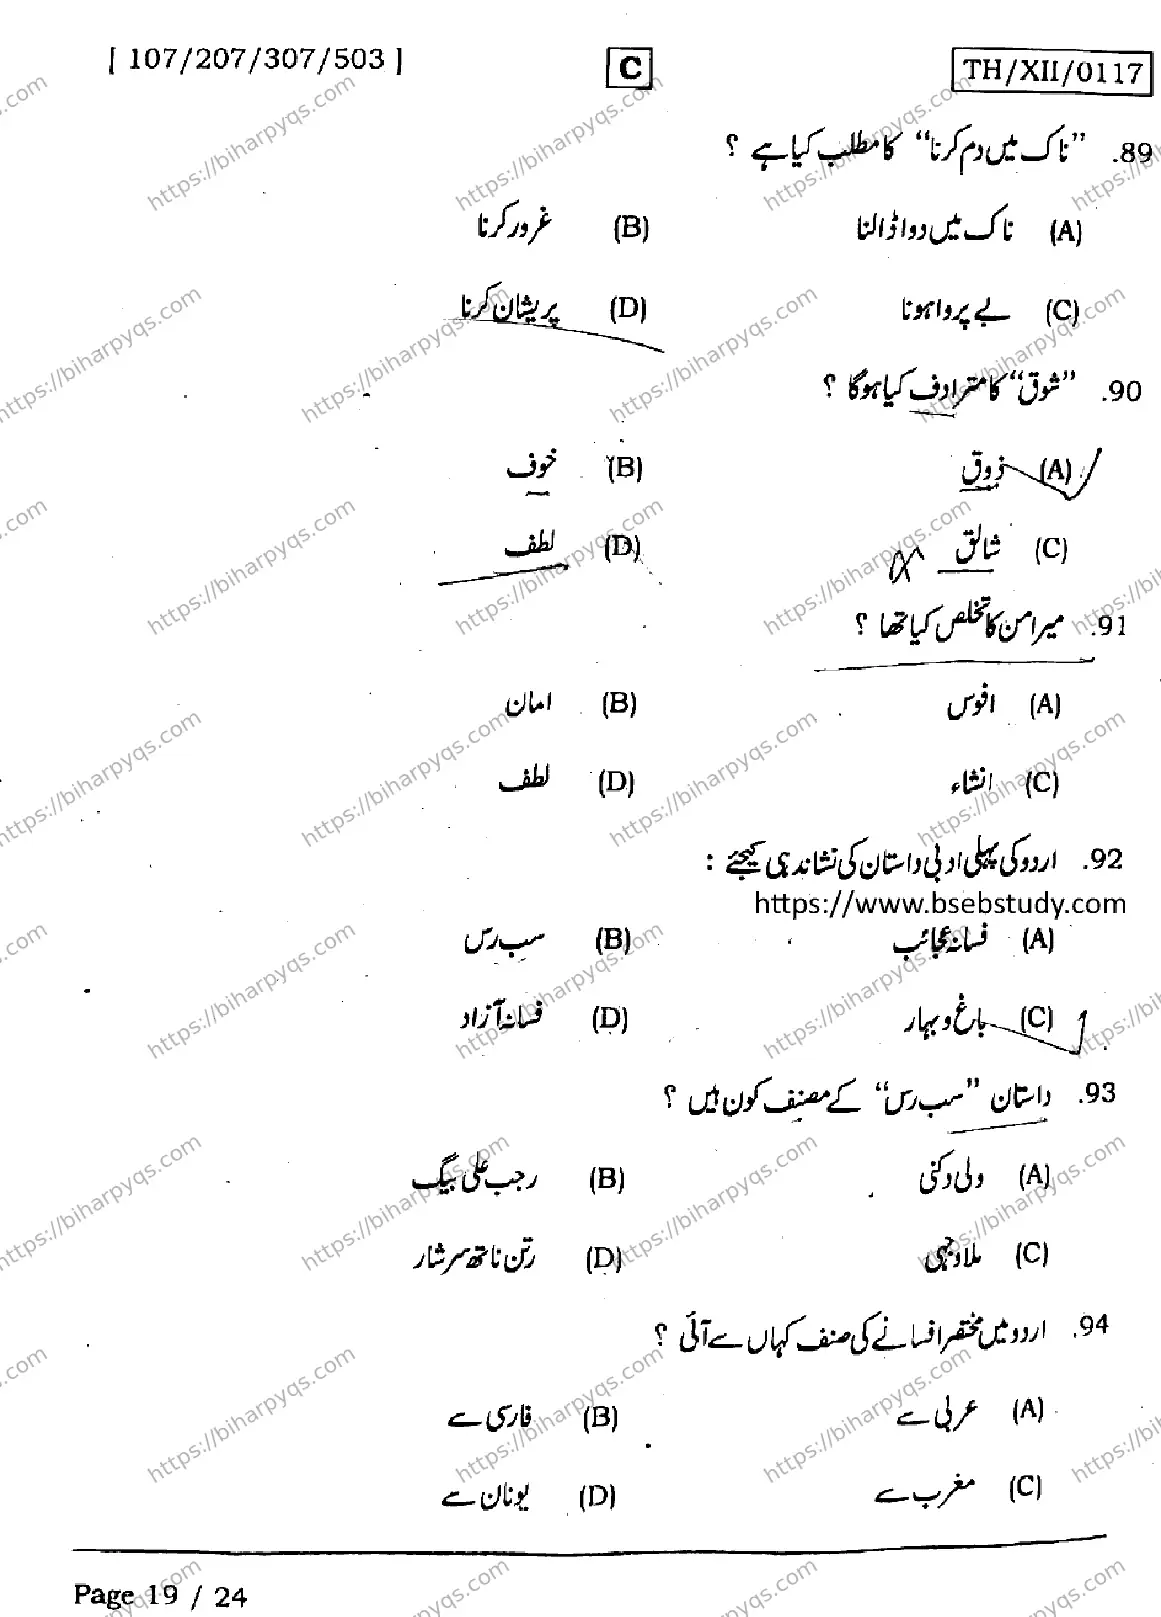 [ 107/207/307/503 ] C TH/XII/0117
89. ”ناک میں دم کرنا“ کا مطلب کیا ہے ؟
(A) ناک میں دوا ڈالنا (B) غرور کرنا
(C) بے پروا ہونا (D) پریشان کرنا
90. ”شوق“ کا مترادف کیا ہوگا ؟
(A) ذوق (B) خوف
(C) شالق (D) لطف
91. میر امن کا تخلص کیا تھا ؟
(A) افوس (B) امان
(C) انشاء (D) لطف
92. اردو کی پہلی ادبی داستان کی نشاندہی کیجئے :
https://www.bsebstudy.com
(A) فسانہ عجائب (B) سب رس
(C) باغ و بہار (D) فسانہ آزاد
93. داستان ”سب رس“ کے مصنف کون ہیں ؟
(A) ولی دکنی (B) رجب علی بیگ
(C) ملا وجہی (D) رتن ناتھ سرشار
94. اردو میں مختصر افسانے کی صنف کہاں سے آئی ؟
(A) عربی سے (B) فارسی سے
(C) مغرب سے (D) یونان سے
Page 19 / 24
https://biharpyqs.com